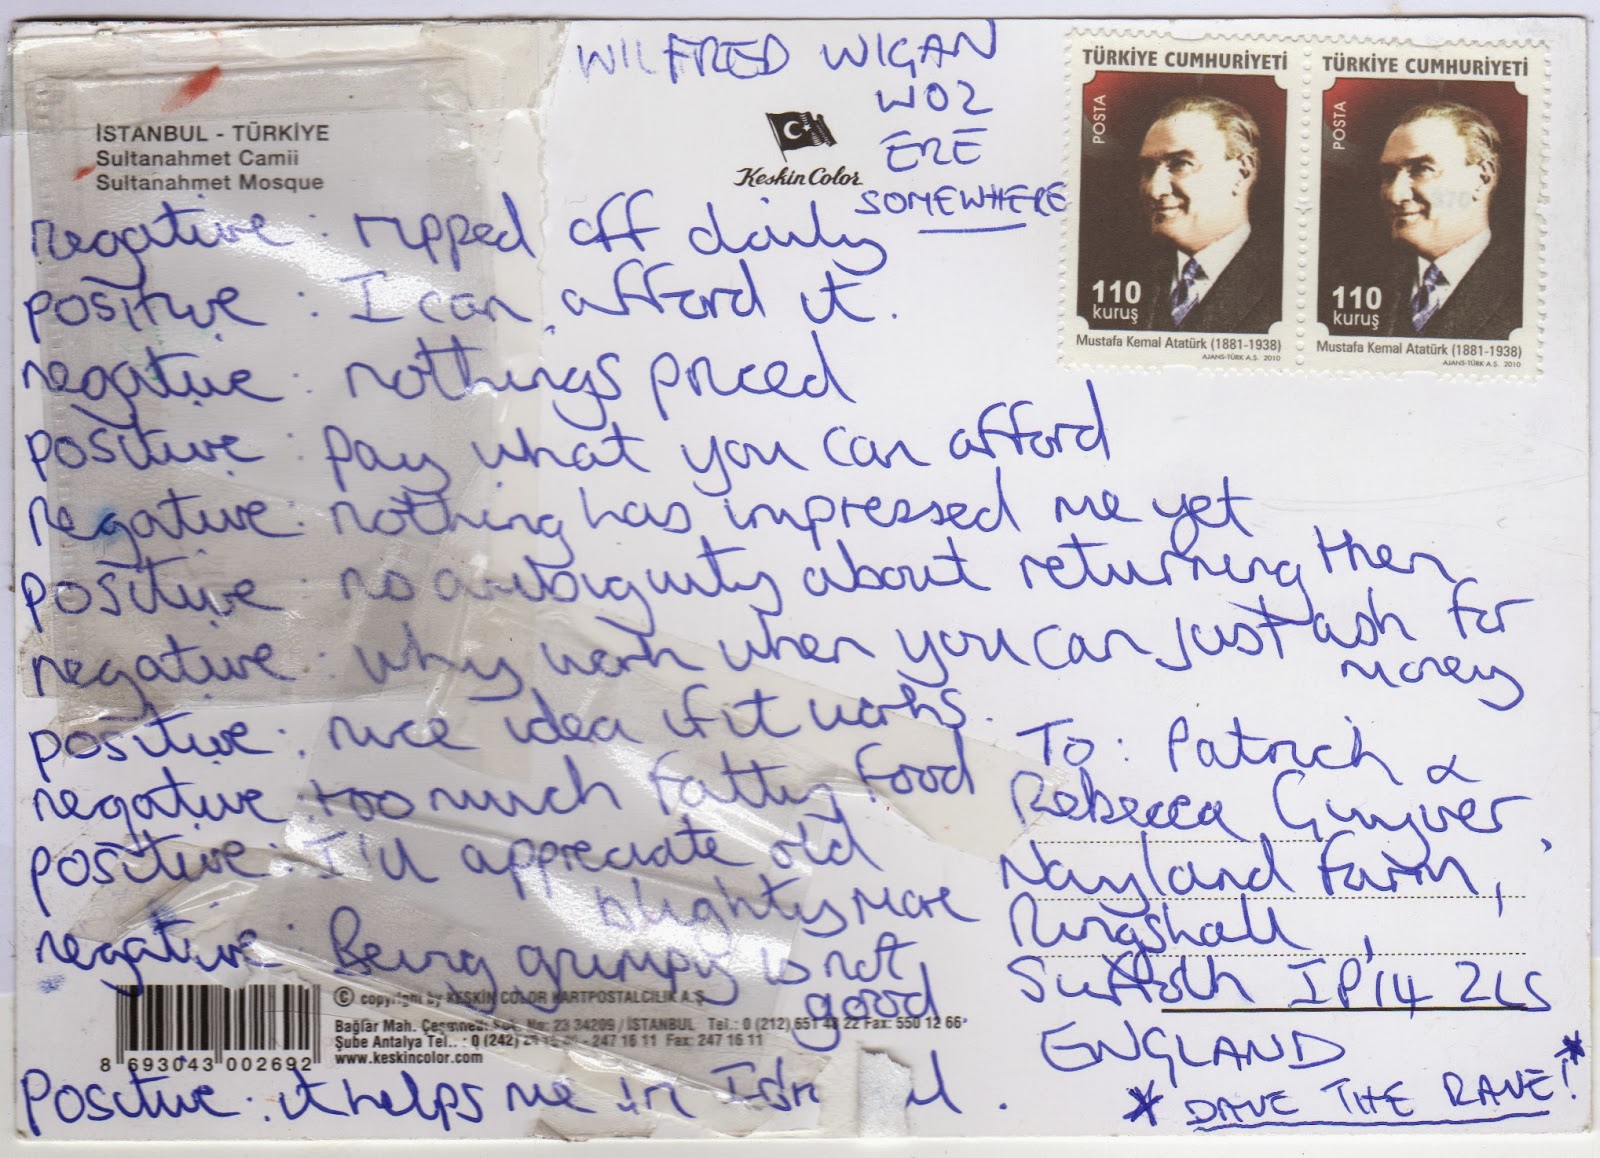 WILFRED WIGAN
WOZ
ERE
SOMEWHERE
TÜRKİYE CUMHURİYETİ
POSTA
110
kuruş
Mustafa Kemal Atatürk (1881-1938)
AJANS-TÜRK A.S. 2010
TÜRKİYE CUMHURİYETİ
POSTA
110
kuruş
Mustafa Kemal Atatürk (1881-1938)
AJANS-TÜRK A.S. 2010
İSTANBUL - TÜRKİYE
Sultanahmet Camii
Sultanahmet Mosque
Keskin Color
negative : ripped off daily
positive : I can afford it.
negative : nothings priced
positive : pay what you can afford
negative : nothing has impressed me yet
positive : no ambiguity about returning then
negative : why work when you can just ask for
money
positive : nice idea if it works.
negative : too much fatty food
positive : I'll appreciate old
blighty more
negative : Being grumpy is not
good
Positive : it helps me in
To : Patrick &
Rebecca Guyver,
Nayland Farm,
Ringshall,
Suffolk IP14 2LS
ENGLAND
* DAVE THE RAVE! *
© copyright by KESKİN COLOR KARTPOSTALCILIK A.Ş.
Bağlar Mah. No: 23 34209 / İSTANBUL Tel.: 0 (212) 651 48 22 Fax: 550 12 66
Şube Antalya Tel.. : 0 (242) - 247 16 11 Fax: 247 16 11
www.keskincolor.com
8 693043 002692